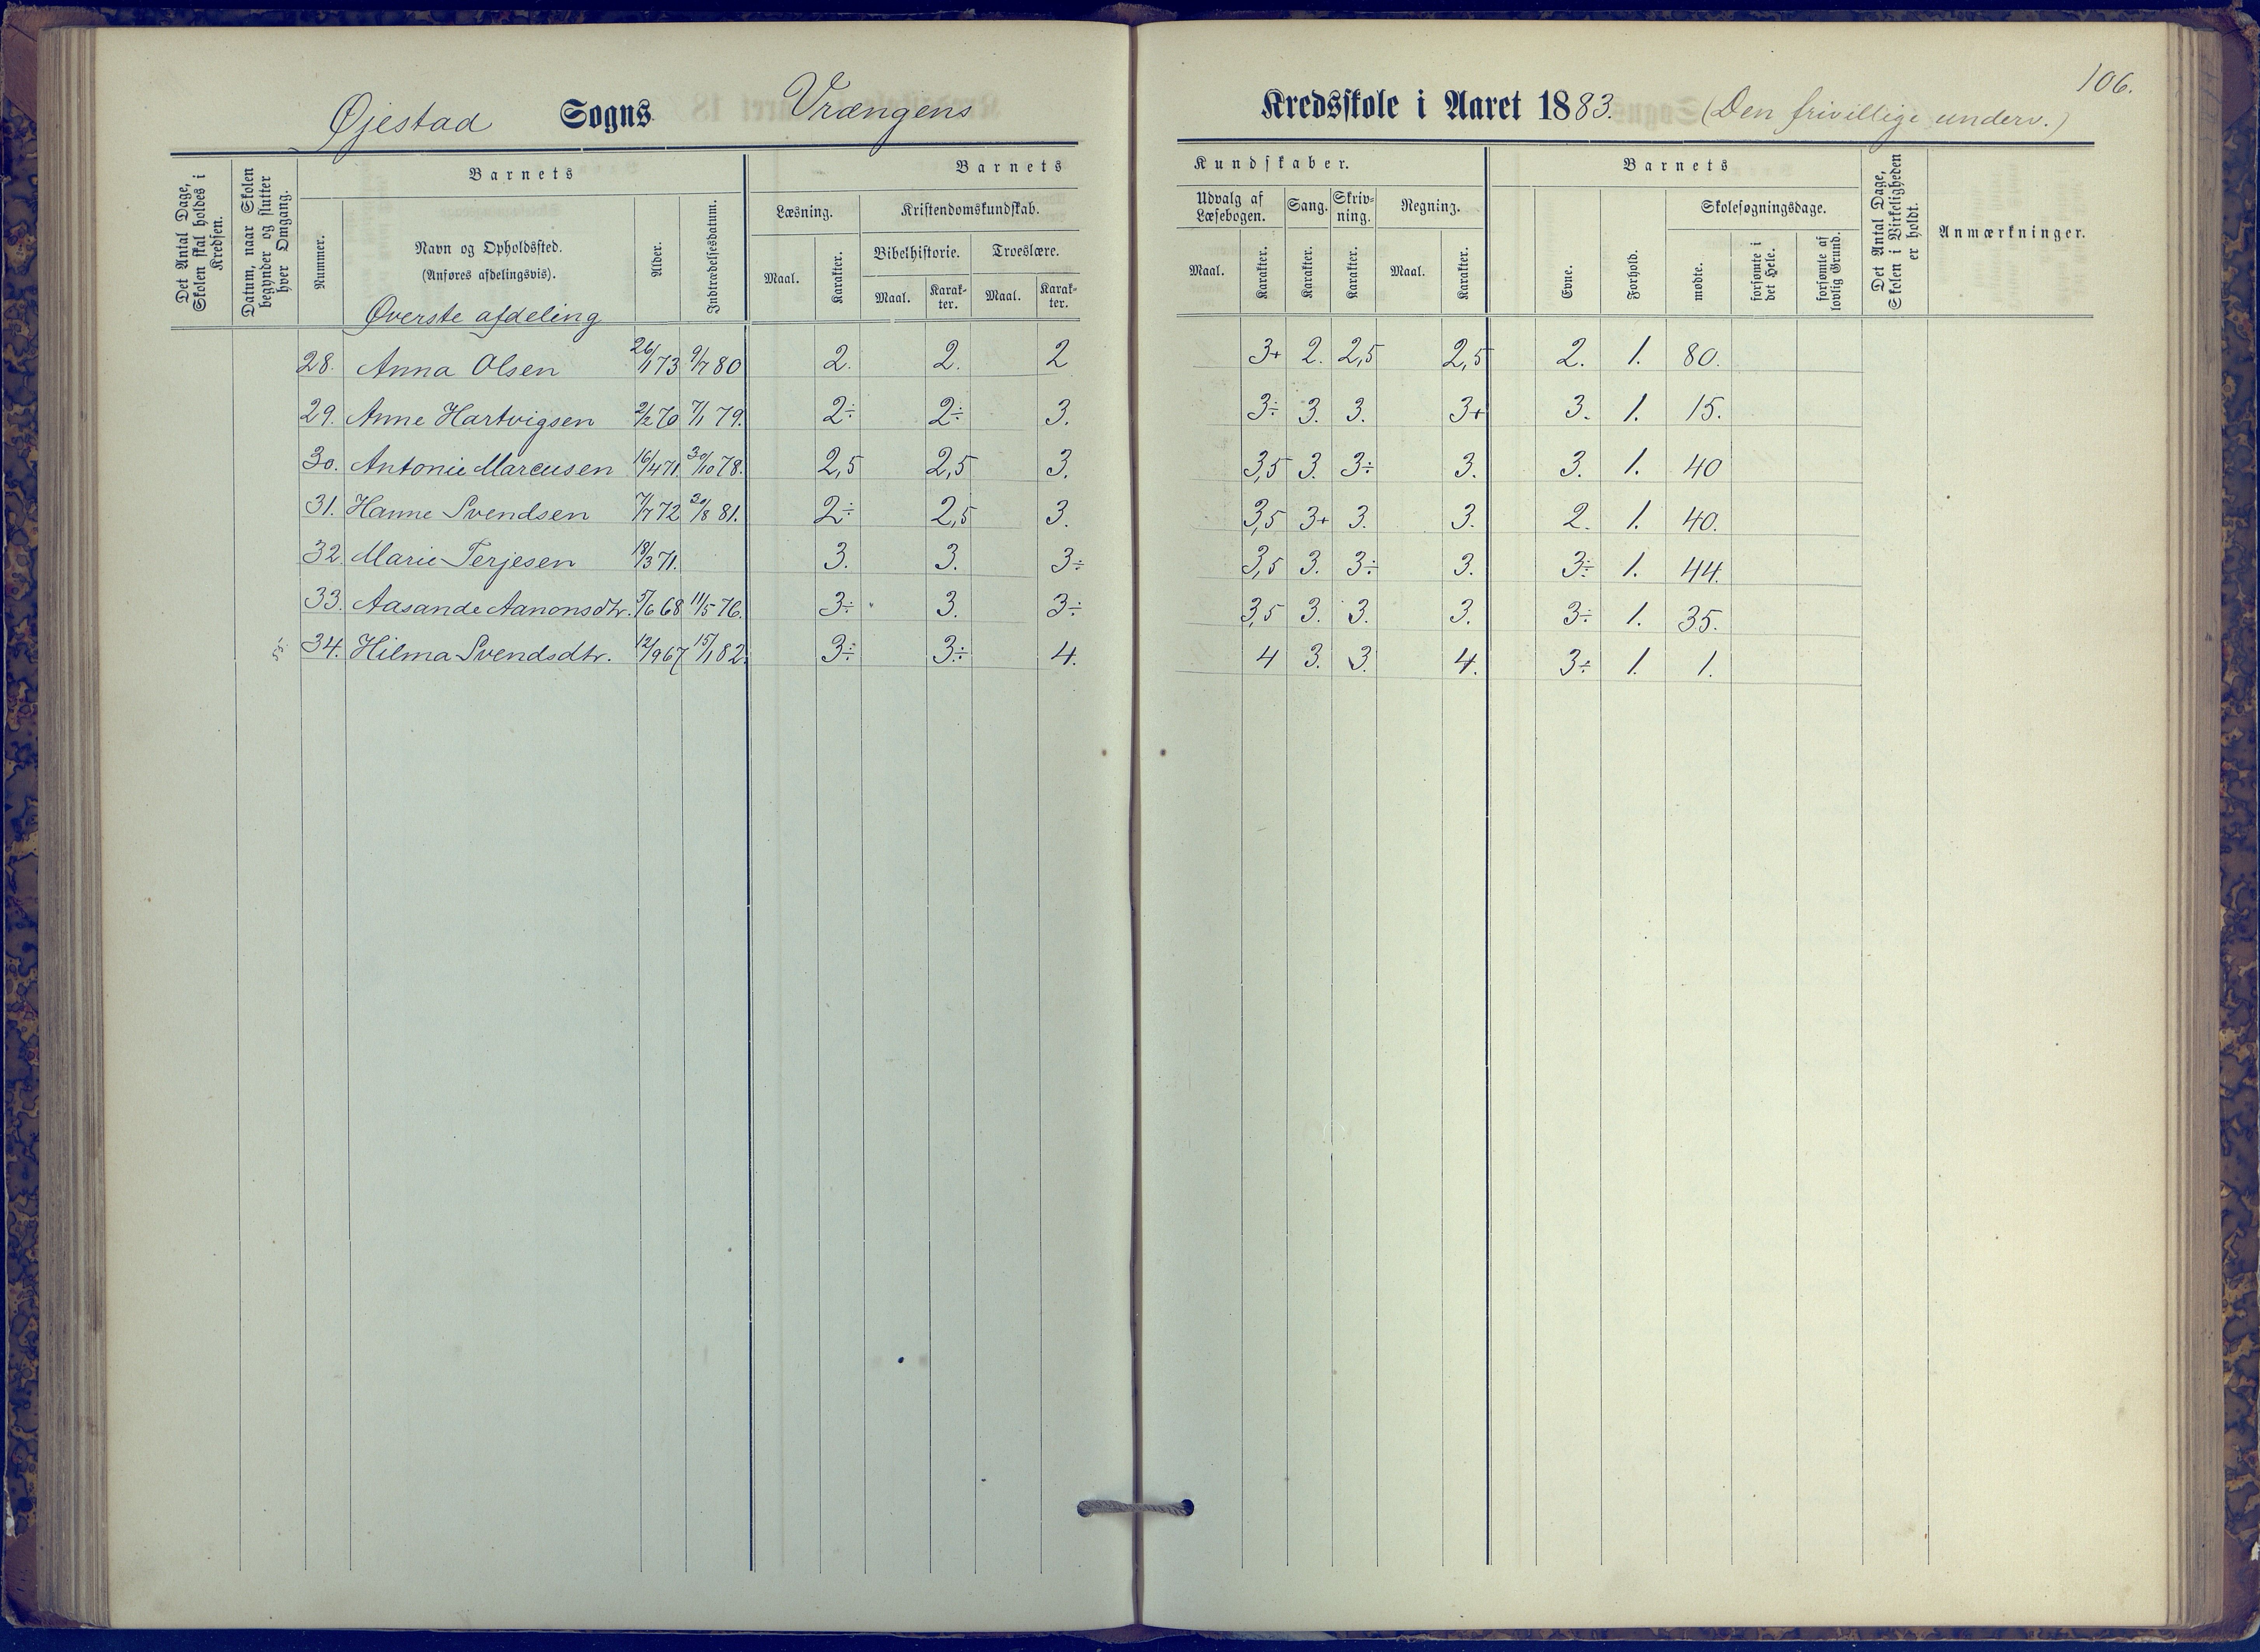 106.
Øjestad Sogns Vrængens Kredsskole i Aaret 1883. (Den frivillige underv.)
Det Antal Dage, Skolen skal holdes i Kredsen.
Datum, naar Skolen begynder og slutter hver Omgang.
Barnets
Nummer.
Navn og Opholdssted.
(Anføres afdelingsvis).
Alder.
Indtrædelsesdatum.
Barnets Kundskaber.
Læsning.
Maal. Karakter.
Kristendomskundskab.
Bibelhistorie. Troeslære.
Maal. Karak-ter. Maal. Karak-ter.
Udvalg af Læsebogen.
Maal. Karakter.
Sang. Karakter.
Skriv-ning. Karakter.
Regning.
Maal. Karakter.
Barnets
Evne. Forhold.
Skolesøgningsdage.
mødte. forsømte i det Hele. forsømte af lovlig Grund.
Det Antal Dage, Skolen i Virkeligheden er holdt.
Anmærkninger.
Øverste afdeling
28. Anna Olsen 26/1 73 9/7 80 2. 2. 2 3+ 2. 2,5 2,5 2. 1. 80.
29. Anne Hartvigsen 2/2 70 7/1 79. 2÷ 2÷ 3. 3÷ 3. 3. 3+ 3. 1. 15.
30. Antonie Marcusen 16/4 71. 30/10 78. 2,5 2,5 3. 3,5 3. 3÷ 3. 3. 1. 40
31. Hanne Svendsen 7/7 72 30/8 81. 2÷ 2,5 3. 3,5 3+ 3. 3. 2. 1. 40.
32. Marie Terjesen 18/3 71. 3. 3. 3÷ 3,5 3. 3÷ 3. 3÷ 1. 44.
33. Aasande Aanonsdtr. 5/6 68 11/5 76. 3÷ 3. 3÷ 3,5 3. 3. 3. 3÷ 1. 35.
34. Hilma Svendsdtr. 12/9 67 15/1 82. 3÷ 3÷ 4. 4 3. 3. 4. 3÷ 1. 1.